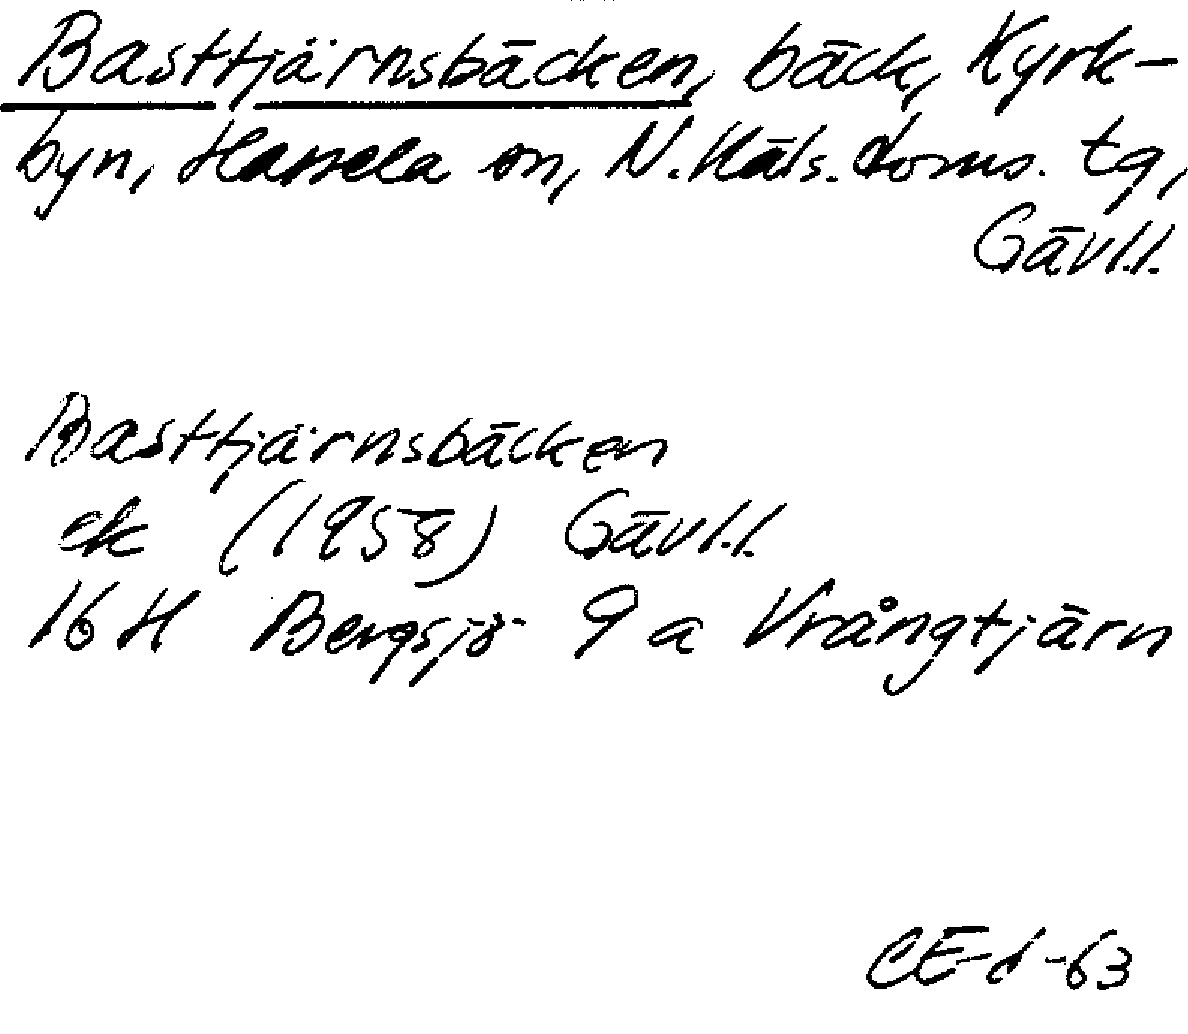 Basttjärnsbäcken, bäck, Kyrk-
byn, Hassela sn, N. Häls. doms. tg,
Gävl.l.
Basttjärnsbäcken
ek (1958) Gävl.l.
16 H Bergsjö 9 a Vrångtjärn
CE-d-63